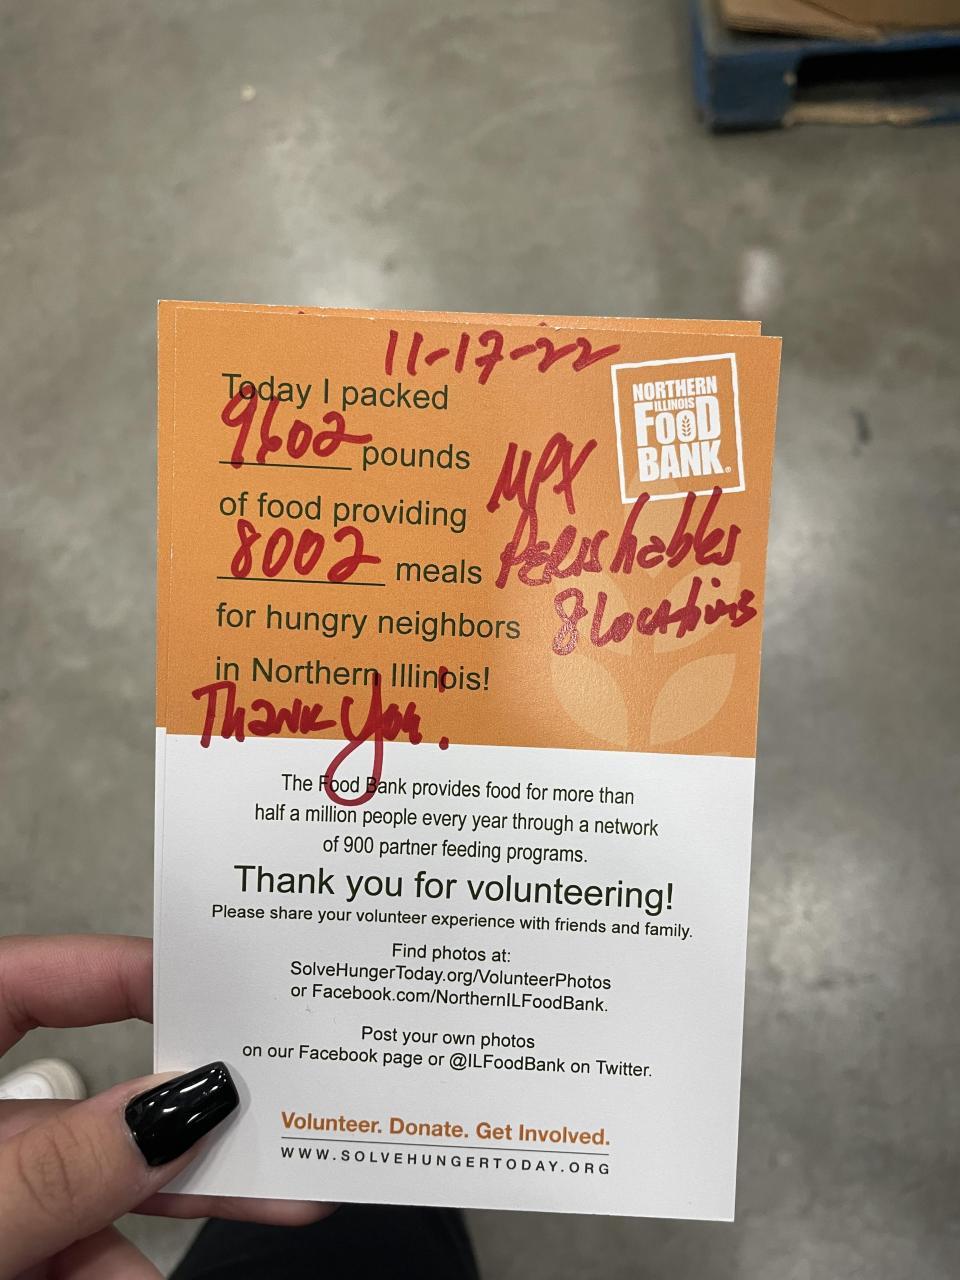 11-17-22
Today I packed
9602 pounds
of food providing
8002 meals
for hungry neighbors
in Northern Illinois!
Thank you!
NORTHERN
ILLINOIS
FOOD
BANK®
MPX
Perishables
8 locations
The Food Bank provides food for more than
half a million people every year through a network
of 900 partner feeding programs.
Thank you for volunteering!
Please share your volunteer experience with friends and family.
Find photos at:
SolveHungerToday.org/VolunteerPhotos
or Facebook.com/NorthernILFoodBank.
Post your own photos
on our Facebook page or @ILFoodBank on Twitter.
Volunteer. Donate. Get Involved.
WWW.SOLVEHUNGERTODAY.ORG